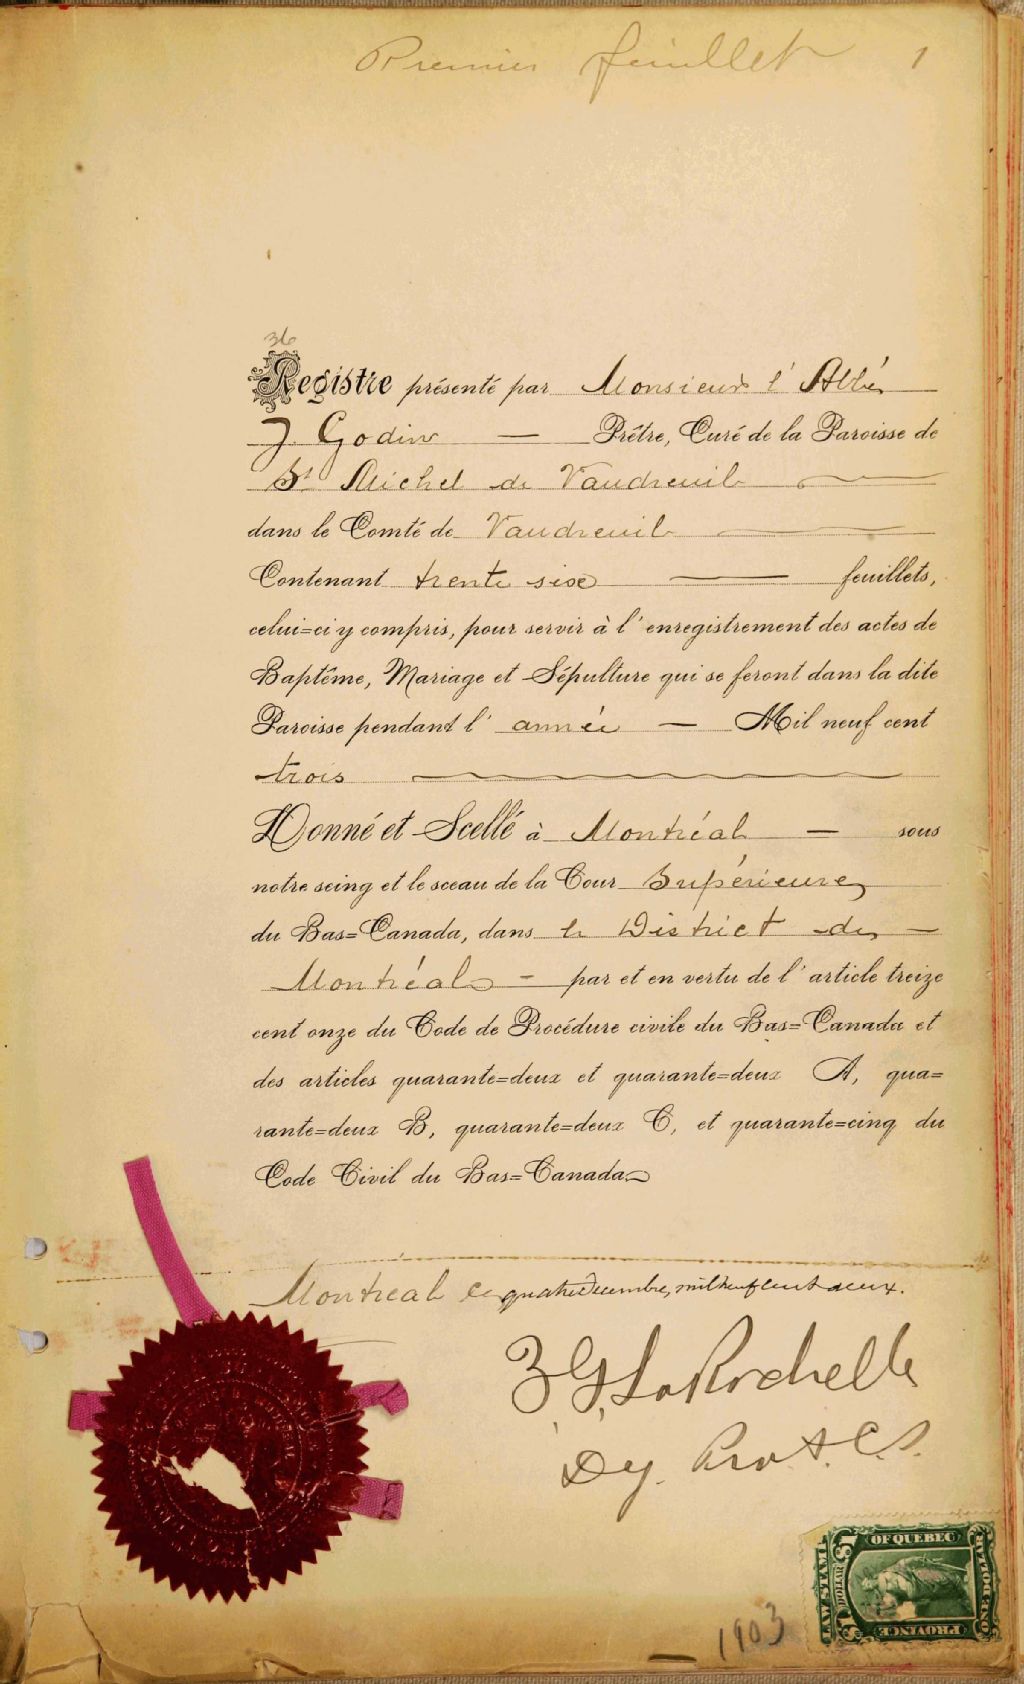 Premier feuillet 1
36
Registre présenté par Monsieur l'Abbé
J Godin — Prêtre, Curé de la Paroisse de
St Michel de Vaudreuil
dans le Comté de Vaudreuil
Contenant trente six — feuillets,
celui=ci y compris, pour servir à l'enregistrement des actes de
Baptême, Mariage et Sépulture qui se feront dans la dite
Paroisse pendant l'année — Mil neuf cent
trois
Donné et Scellé à Montréal — sous
notre seing et le sceau de la Cour Supérieure
du Bas=Canada, dans le District de —
Montréal - par et en vertu de l'article treize
cent onze du Code de Procédure civile du Bas=Canada et
des articles quarante=deux et quarante=deux A, qua=
rante=deux B, quarante=deux C, et quarante=cinq du
Code Civil du Bas=Canada
Montréal ce quatre Décembre, mil neuf cent deux.
Z G LaRochelle
Dy. Prot. C.S.
LAW STAMP
$1 DOLLAR $1
OF QUEBEC
ONE DOLLAR
PROVINCE
1903